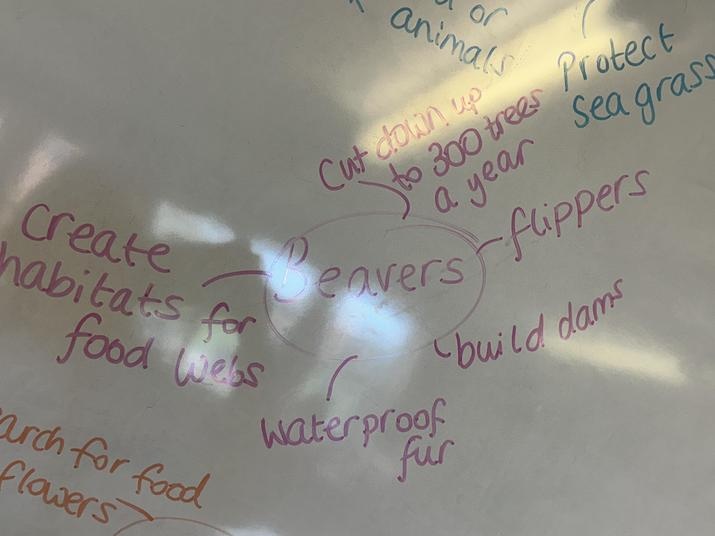 or
animals
Protect
sea grass
Cut down up
to 300 trees
a year
flippers
Beavers
Create
habitats for
food webs
build dams
waterproof
fur
for food
flowers